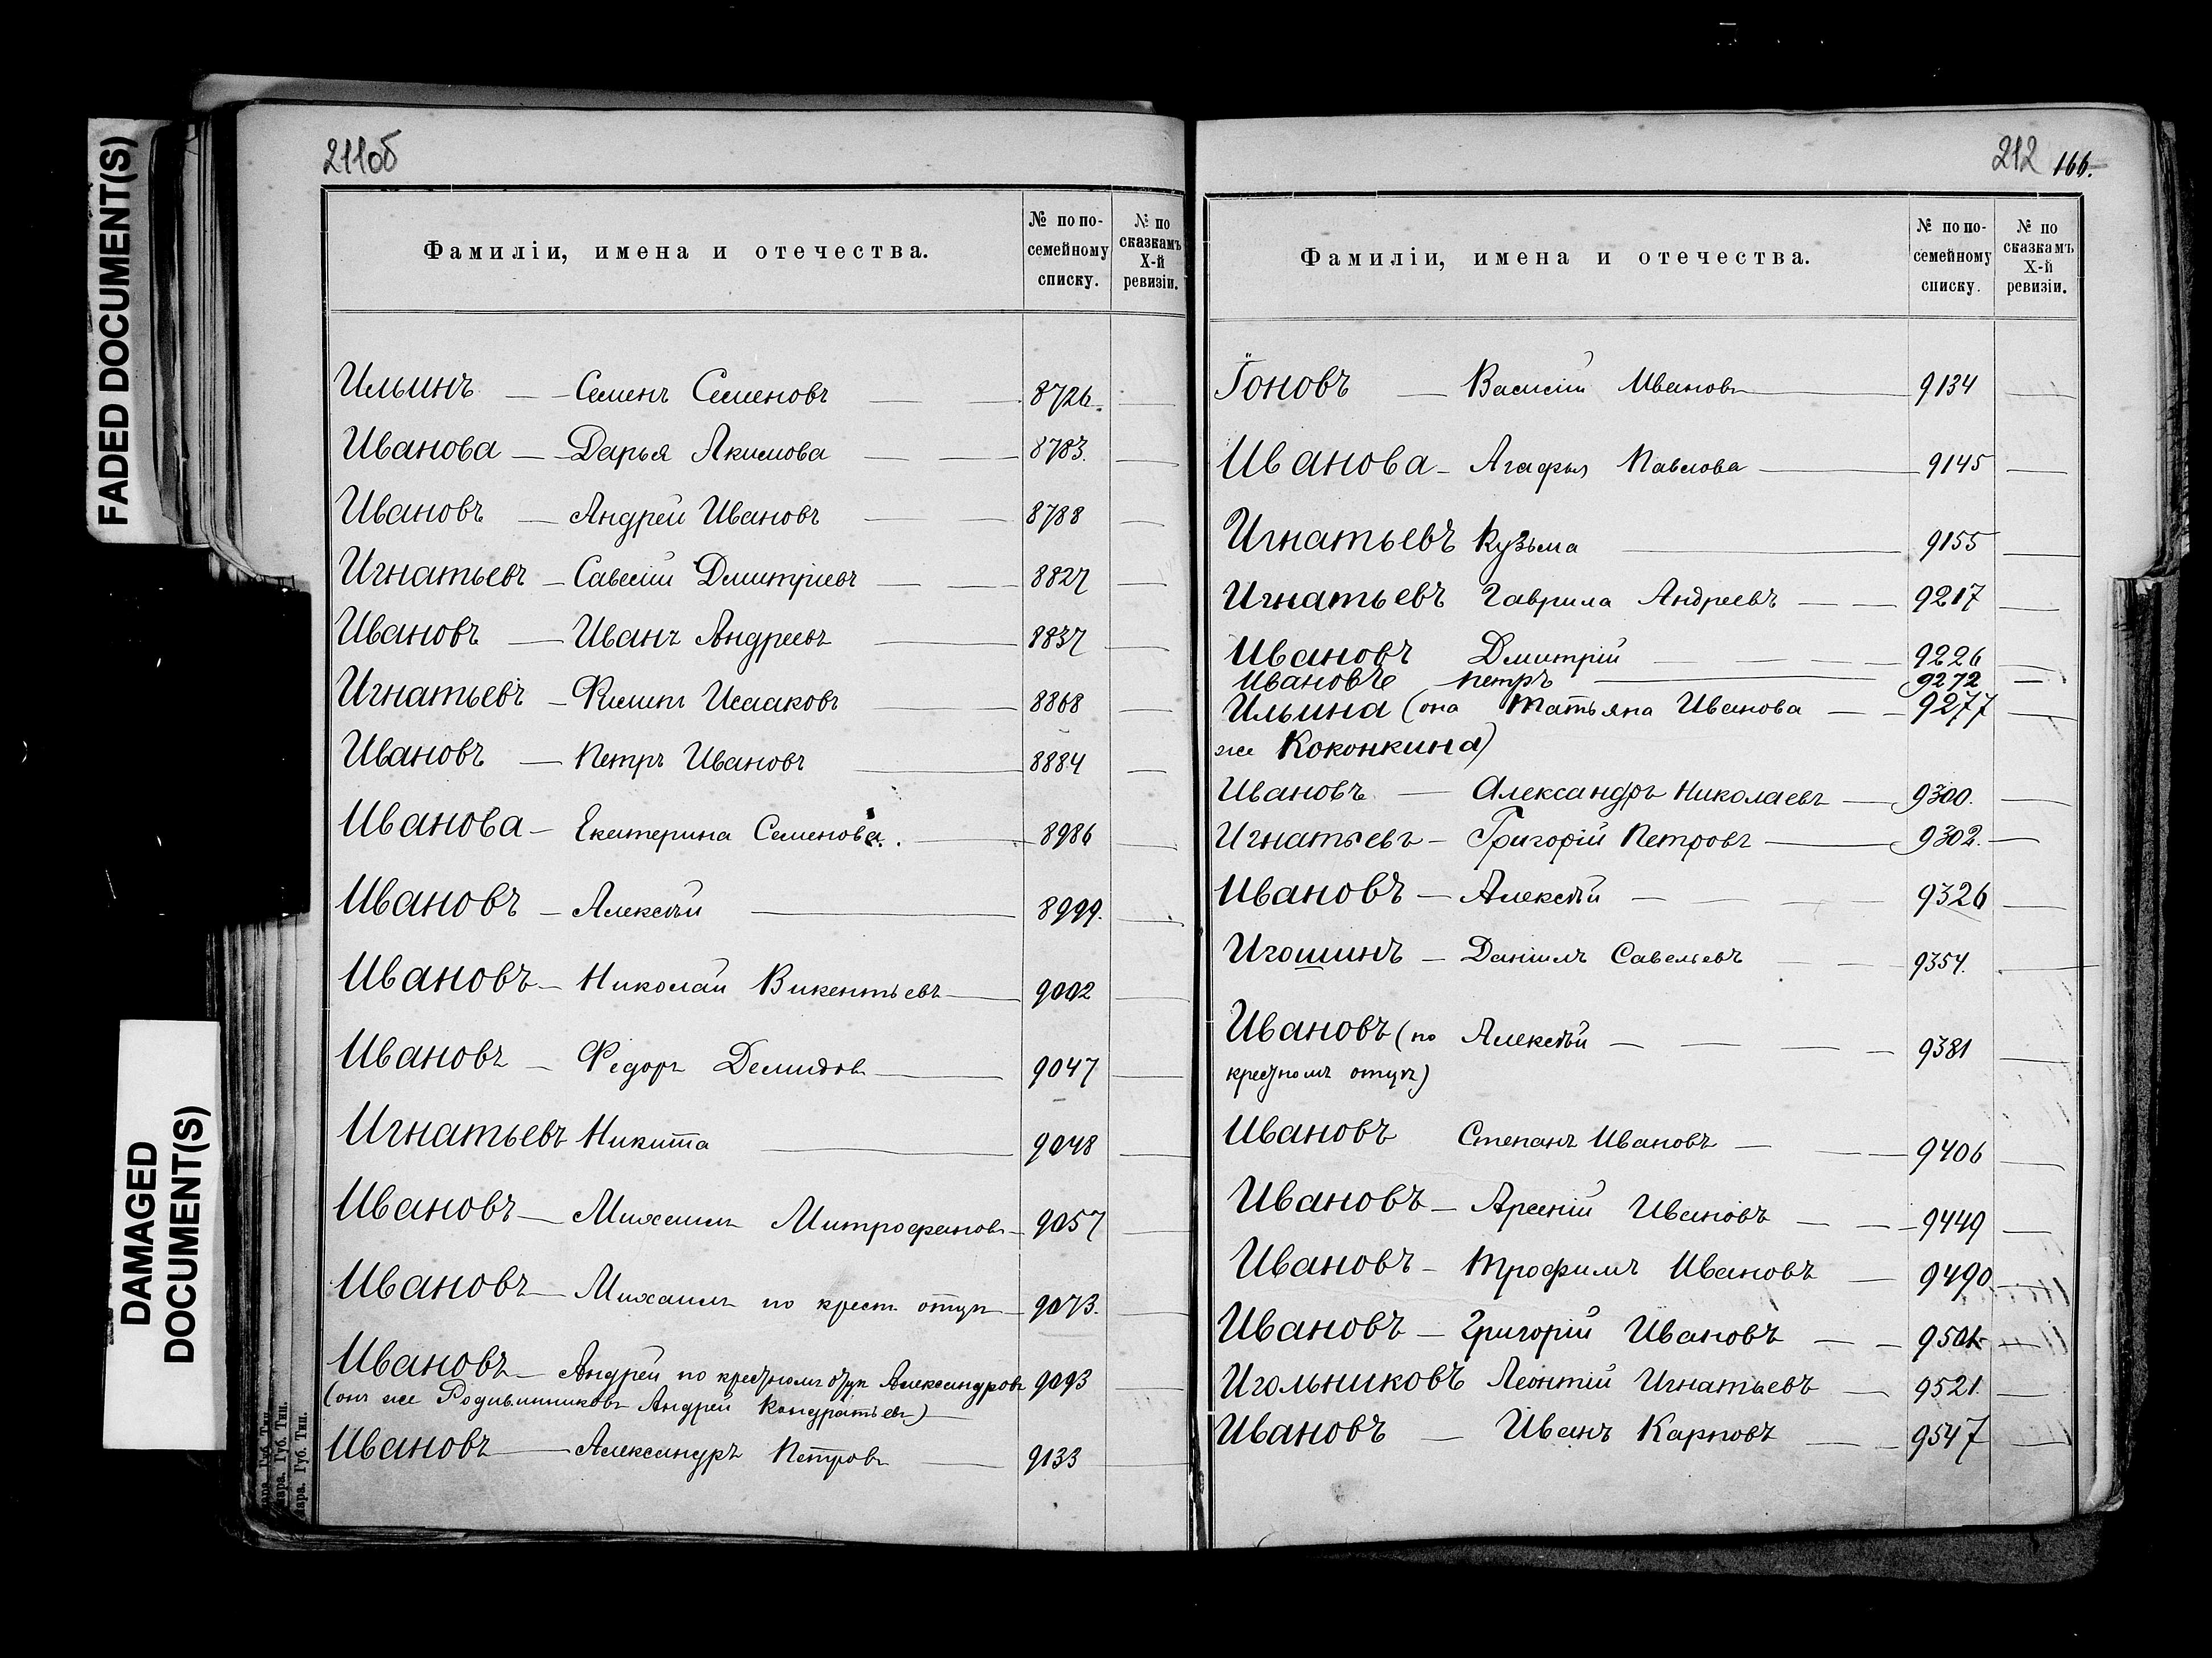 FADED DOCUMENT(S)
DAMAGED
DOCUMENT(S)
211об
Фамиліи, имена и отечества.
№ по по-
семейному
списку.
№ по
сказкамъ
X-й
ревизіи.
Ильинъ — Семенъ Семеновъ — 8726.
Иванова — Дарья Акимова — 8783.
Ивановъ — Андрей Ивановъ — 8788
Игнатьевъ — Савелій Дмитріевъ — 8827
Ивановъ — Иванъ Андреевъ — 8837
Игнатьевъ — Филипъ Исааковъ — 8868
Ивановъ — Петръ Ивановъ — 8884
Иванова — Екатерина Семенова. — 8986
Ивановъ — Алексѣй — 8999.
Ивановъ — Николай Викентьевъ — 9002
Ивановъ — Федоръ Демидовъ — 9047
Игнатьевъ Никита — 9048
Ивановъ — Михаилъ Митрофановъ — 9057
Ивановъ — Михаилъ по крест. отцу — 9073.
Ивановъ — Андрей по крестному отцу Александровъ 9093
(онъ же Родильниковъ Андрей Кондратьевъ) —
Ивановъ — Александръ Петровъ — 9133
212 166.
Фамиліи, имена и отечества.
№ по по-
семейному
списку.
№ по
сказкамъ
X-й
ревизіи.
Іоновъ — Василій Ивановъ — 9134
Иванова — Агафья Павлова — 9145
Игнатьевъ Кузьма — 9155
Игнатьевъ Гаврила Андреевъ — 9217
Ивановъ Дмитрій — 9226
Ивановъ Петръ — 9272
Ильина (она Татьяна Иванова — 9277
же Коконкина)
Ивановъ — Александръ Николаевъ — 9300.
Игнатьевъ — Григорій Петровъ — 9302.
Ивановъ — Алексѣй — 9326
Игошинъ — Даніилъ Савельевъ — 9354.
Ивановъ (по Алексѣй — 9381
крестному отцу)
Ивановъ Степанъ Ивановъ — 9406
Ивановъ — Арсеній Ивановъ — 9449
Ивановъ — Трофимъ Ивановъ — 9490
Ивановъ — Григорій Ивановъ — 9501
Игольниковъ Леонтій Игнатьевъ — 9521.
Ивановъ — Иванъ Карповъ — 9547